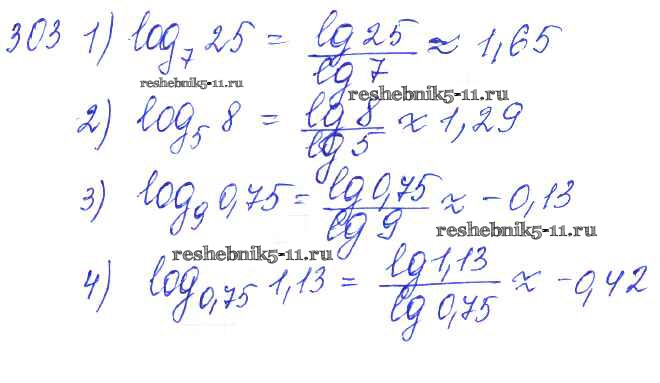 303 1) log₇ 25 = lg 25 / lg 7 ≈ 1,65
reshebnik5-11.ru
reshebnik5-11.ru
2) log₅ 8 = lg 8 / lg 5 ≈ 1,29
3) log₉ 0,75 = lg 0,75 / lg 9 ≈ -0,13
reshebnik5-11.ru
reshebnik5-11.ru
4) log₀,₇₅ 1,13 = lg 1,13 / lg 0,75 ≈ -0,42